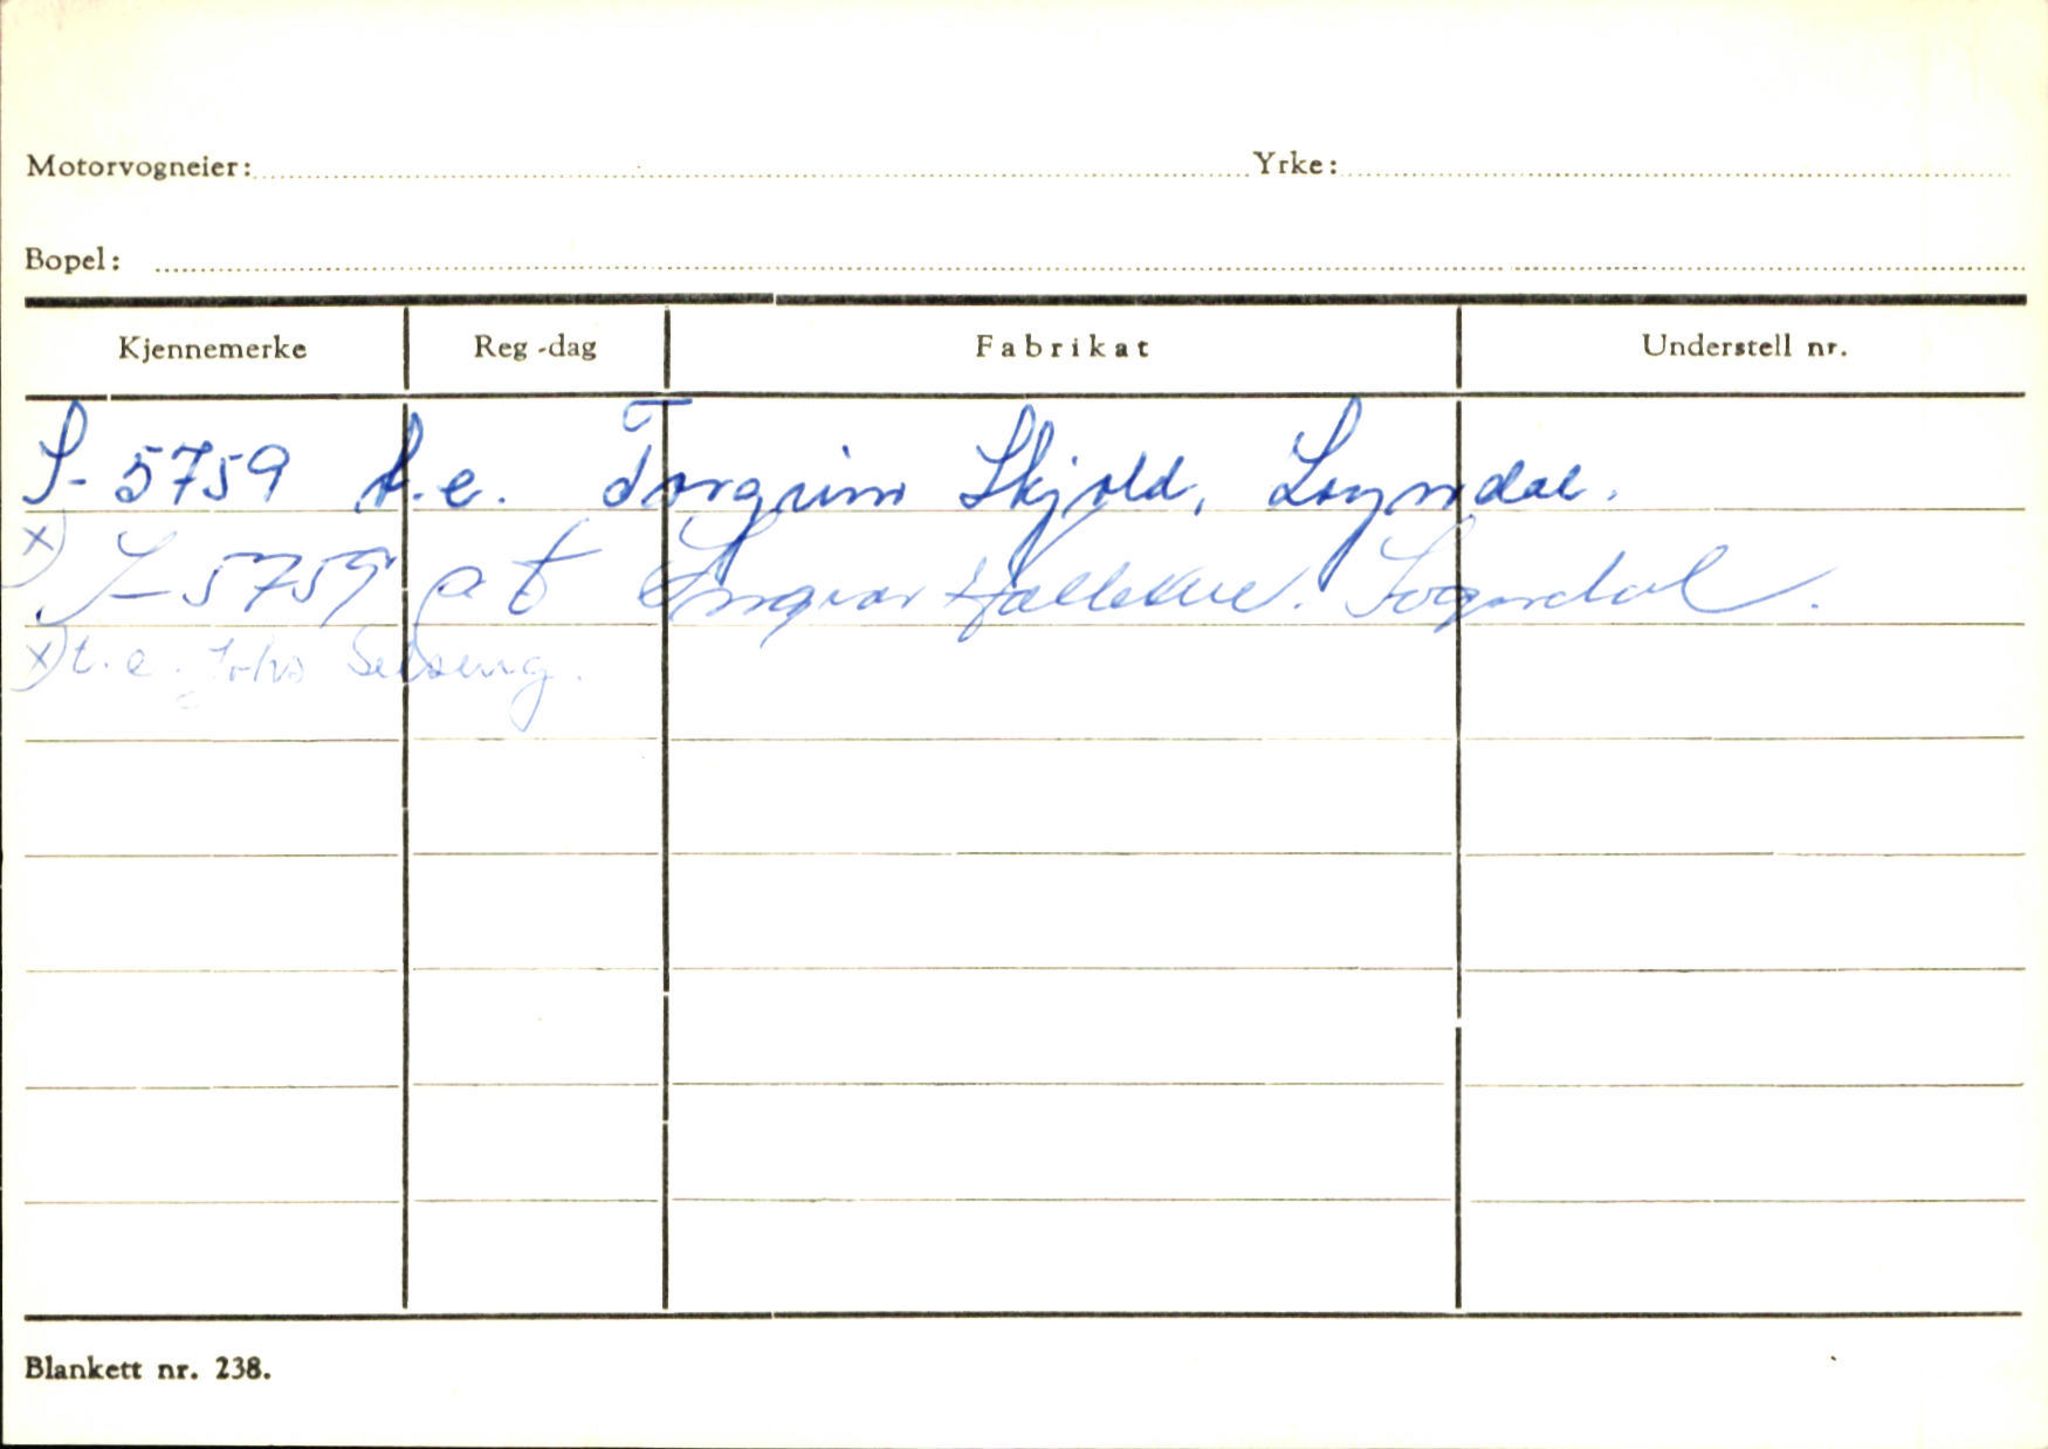 Motorvogneier: Yrke:
Bopel:
Kjennemerke Reg-dag Fabrikat Understell nr.
S-5759 t.e. Torgrim Skjold, Sogndal.
x) S-5759 a t Ingvar Sogndal.
x) t.e. Johs Selseng.
Blankett nr. 238.